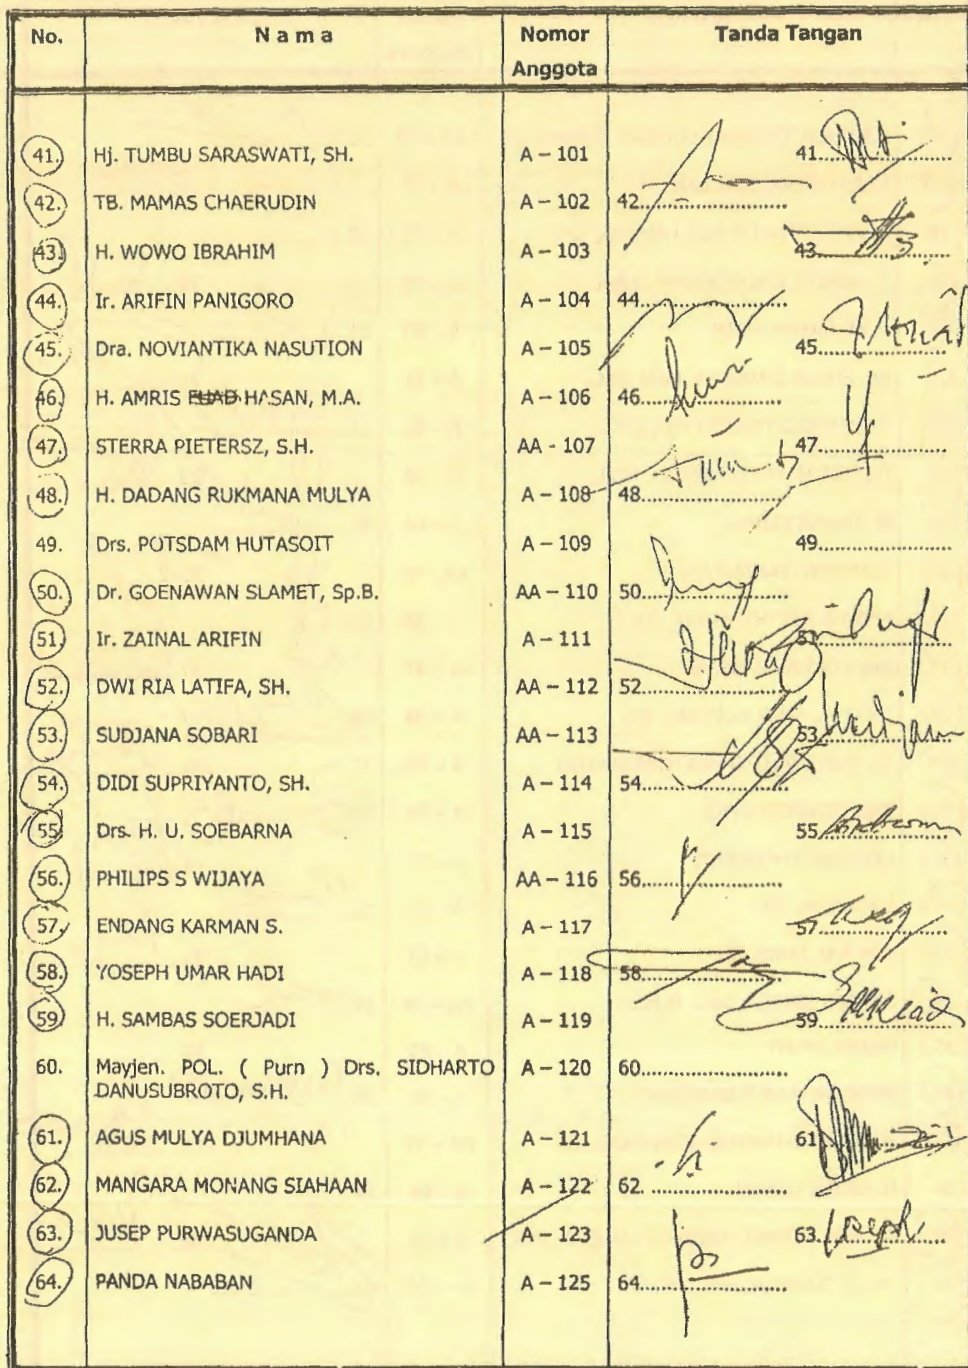 No. N a m a Nomor Anggota Tanda Tangan
41. Hj. TUMBU SARASWATI, SH. A – 101 41...................
42. TB. MAMAS CHAERUDIN A – 102 42...................
43. H. WOWO IBRAHIM A – 103 43...................
44. Ir. ARIFIN PANIGORO A – 104 44...................
45. Dra. NOVIANTIKA NASUTION A – 105 45...................
46. H. AMRIS FUAD HASAN, M.A. A – 106 46...................
47. STERRA PIETERSZ, S.H. AA - 107 47...................
48. H. DADANG RUKMANA MULYA A – 108 48...................
49. Drs. POTSDAM HUTASOIT A – 109 49...................
50. Dr. GOENAWAN SLAMET, Sp.B. AA – 110 50...................
51. Ir. ZAINAL ARIFIN A – 111 51...................
52. DWI RIA LATIFA, SH. AA – 112 52...................
53. SUDJANA SOBARI AA – 113 53...................
54. DIDI SUPRIYANTO, SH. A – 114 54...................
55. Drs. H. U. SOEBARNA A – 115 55...................
56. PHILIPS S WIJAYA AA – 116 56...................
57. ENDANG KARMAN S. A – 117 57...................
58. YOSEPH UMAR HADI A – 118 58...................
59. H. SAMBAS SOERJADI A – 119 59...................
60. Mayjen. POL. ( Purn ) Drs. SIDHARTO A – 120 60...................
DANUSUBROTO, S.H.
61. AGUS MULYA DJUMHANA A – 121 61...................
62. MANGARA MONANG SIAHAAN A – 122 62. ...................
63. JUSEP PURWASUGANDA A – 123 63...................
64. PANDA NABABAN A – 125 64...................